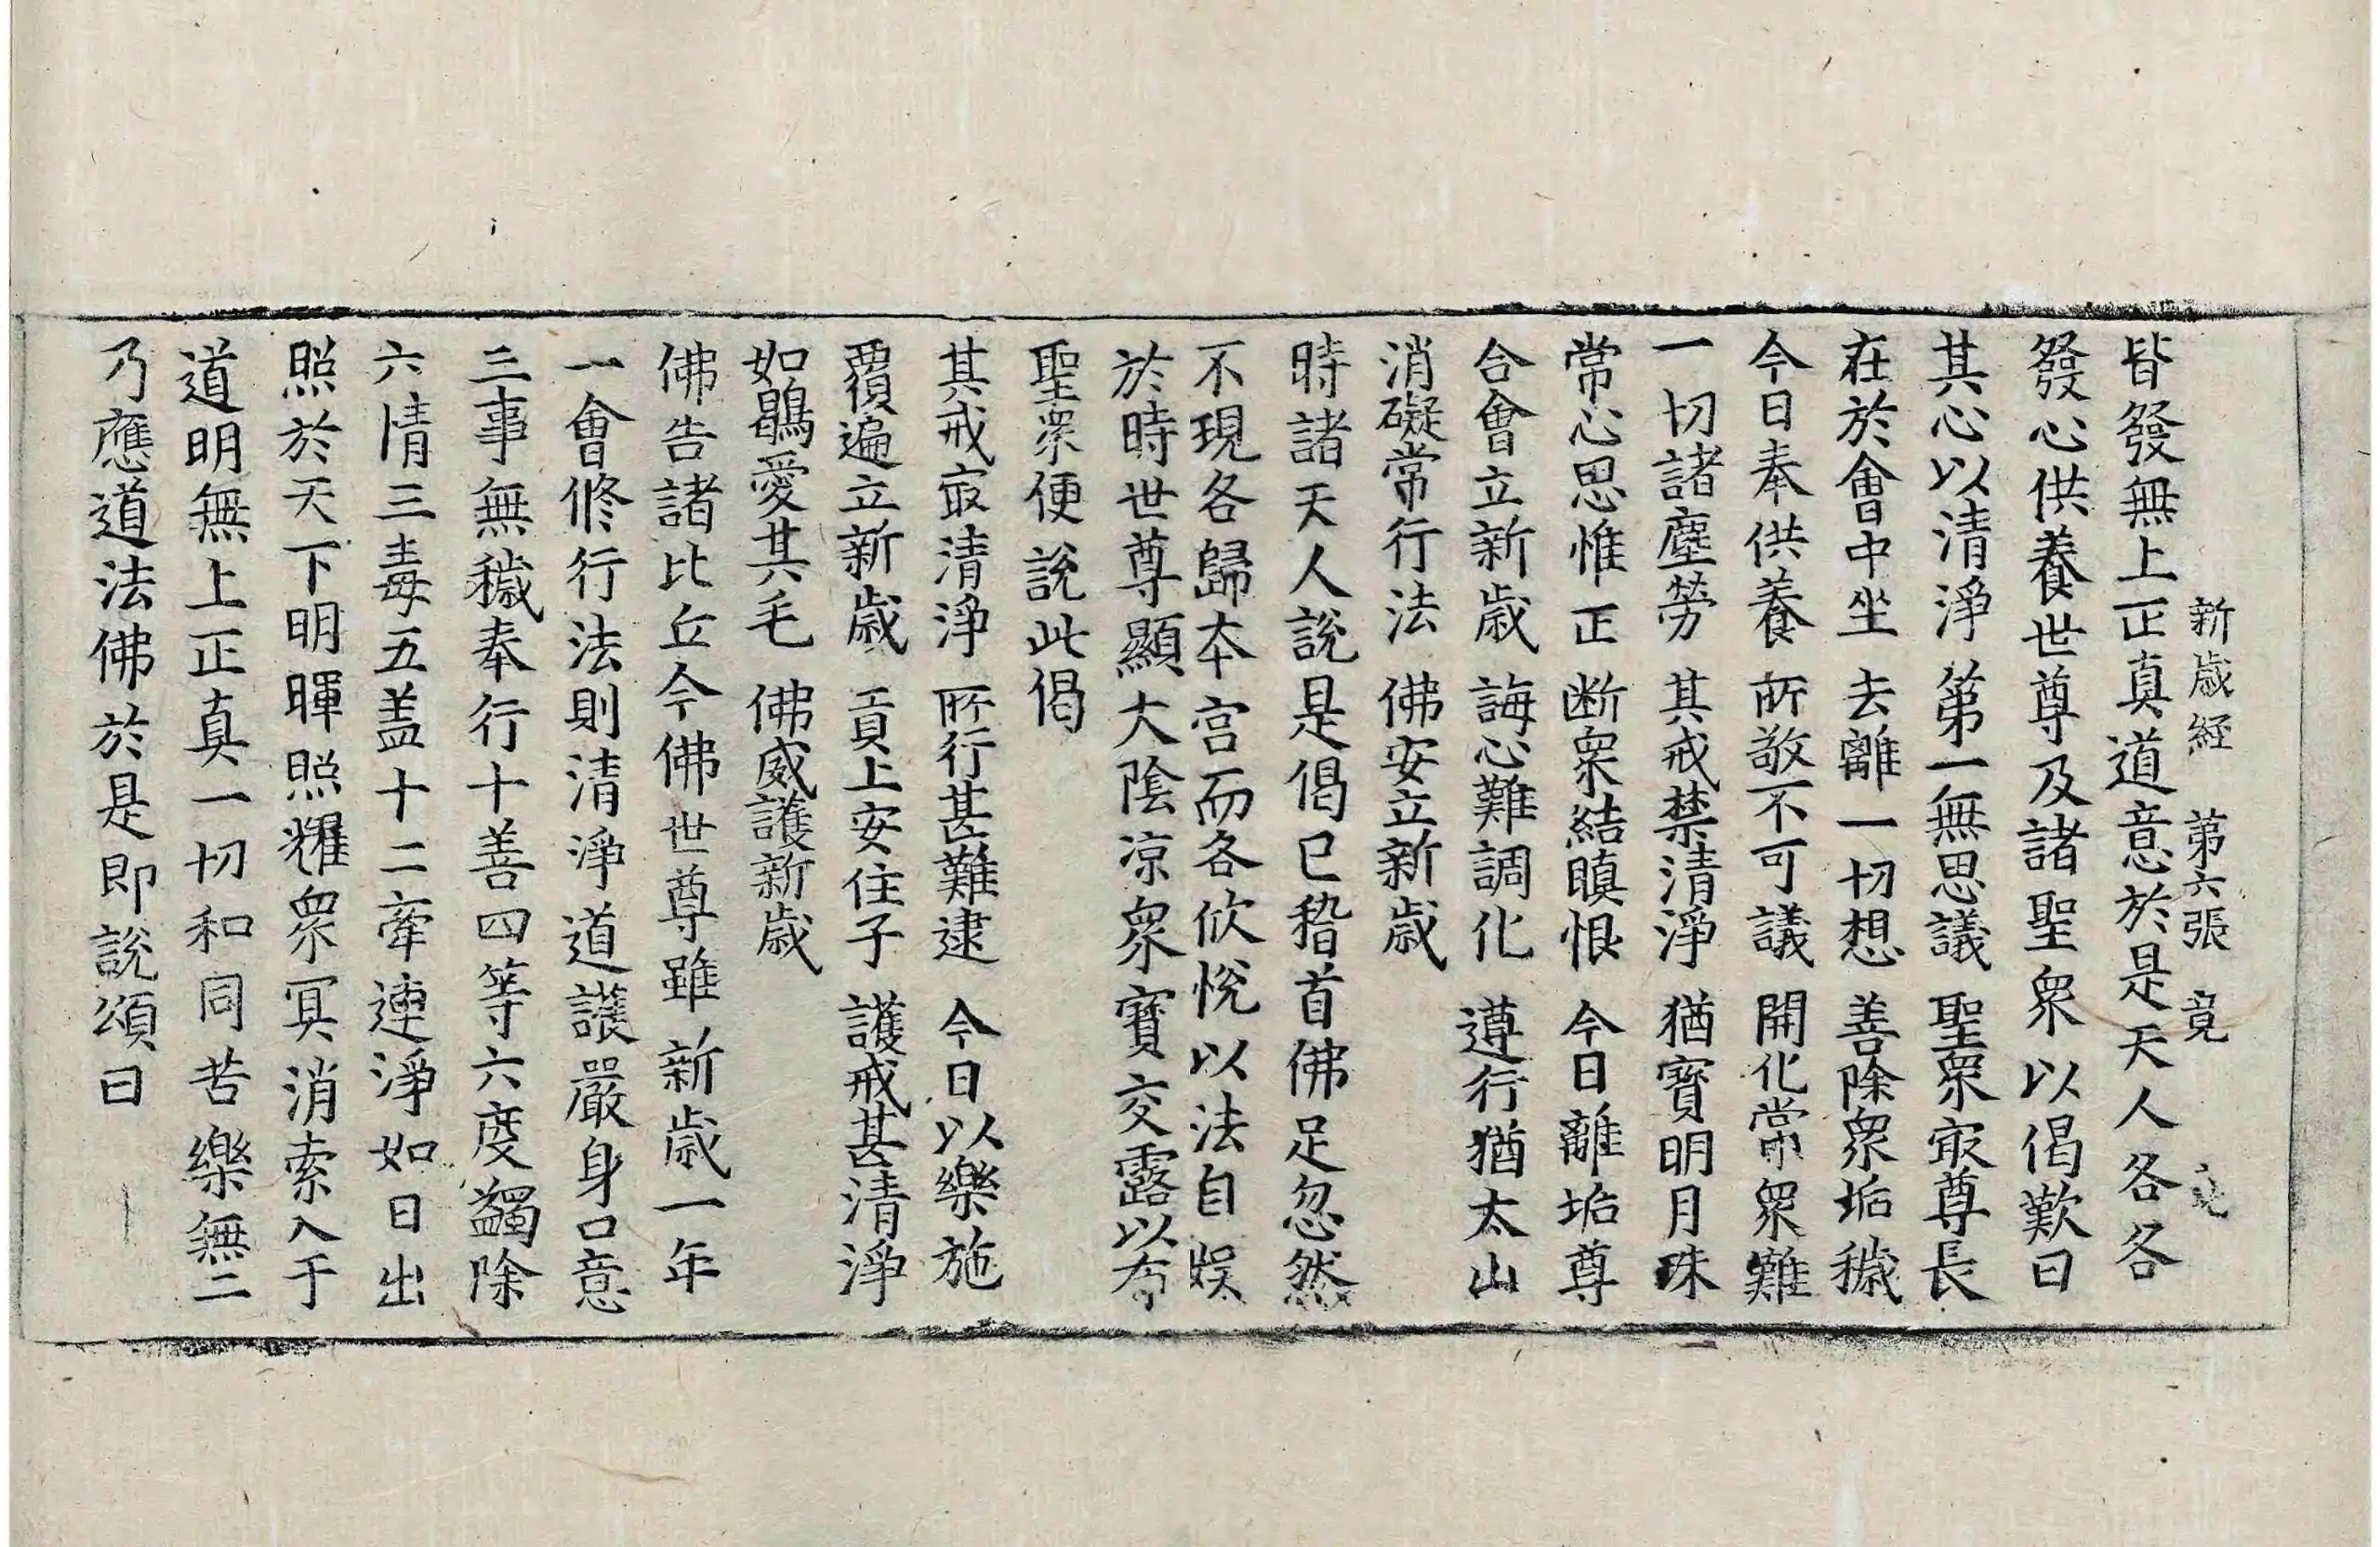 新歲経 第六張 竟
皆發無上正真道意於是天人各各
發心供養世尊及諸聖衆以偈歎曰
其心以清淨 第一無思議 聖衆㝡尊長
在於會中坐 去離一切想 善除衆垢穢
今日奉供養 所敬不可議 開化常衆難
一切諸塵勞 其戒禁清淨 猶寳明月珠
常心思惟正 断衆結瞋恨 今日離垢尊
合會立新歲 誨心難調化 遵行猶太山
消礙常行法 佛安立新歲
時諸天人說是偈已稽首佛足忽然
不現各歸本宫而各欣恱以法自娱
於時世尊顯大陰凉衆寳交露以布
聖衆便說此偈
其戒㝡清淨 所行甚難逮 今日以樂施
覆遍立新歲 貢上安住子 護戒甚清淨
如鶡愛其毛 佛威護新歲
佛告諸比丘今佛世尊雖新歲一年
一會修行法則清淨道護嚴身口意
三事無穢奉行十善四等六度蠲除
六情三毒五盖十二牽連淨如日出
照於天下明暉照耀衆冥消索入于
道明無上正真一切和同苦樂無二
乃應道法佛於是即說頌曰